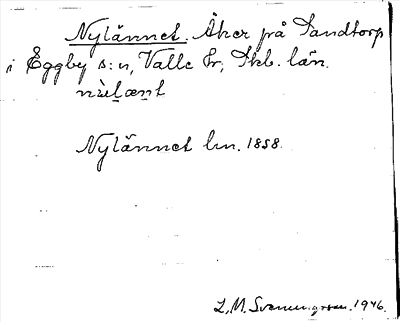 Nylännet. Åker på Sandtorp
i Eggby s:n, Valle hr, Skb. län.
nùlænt
Nylännet lm. 1858.
L. M. Svenungsson. 1946.